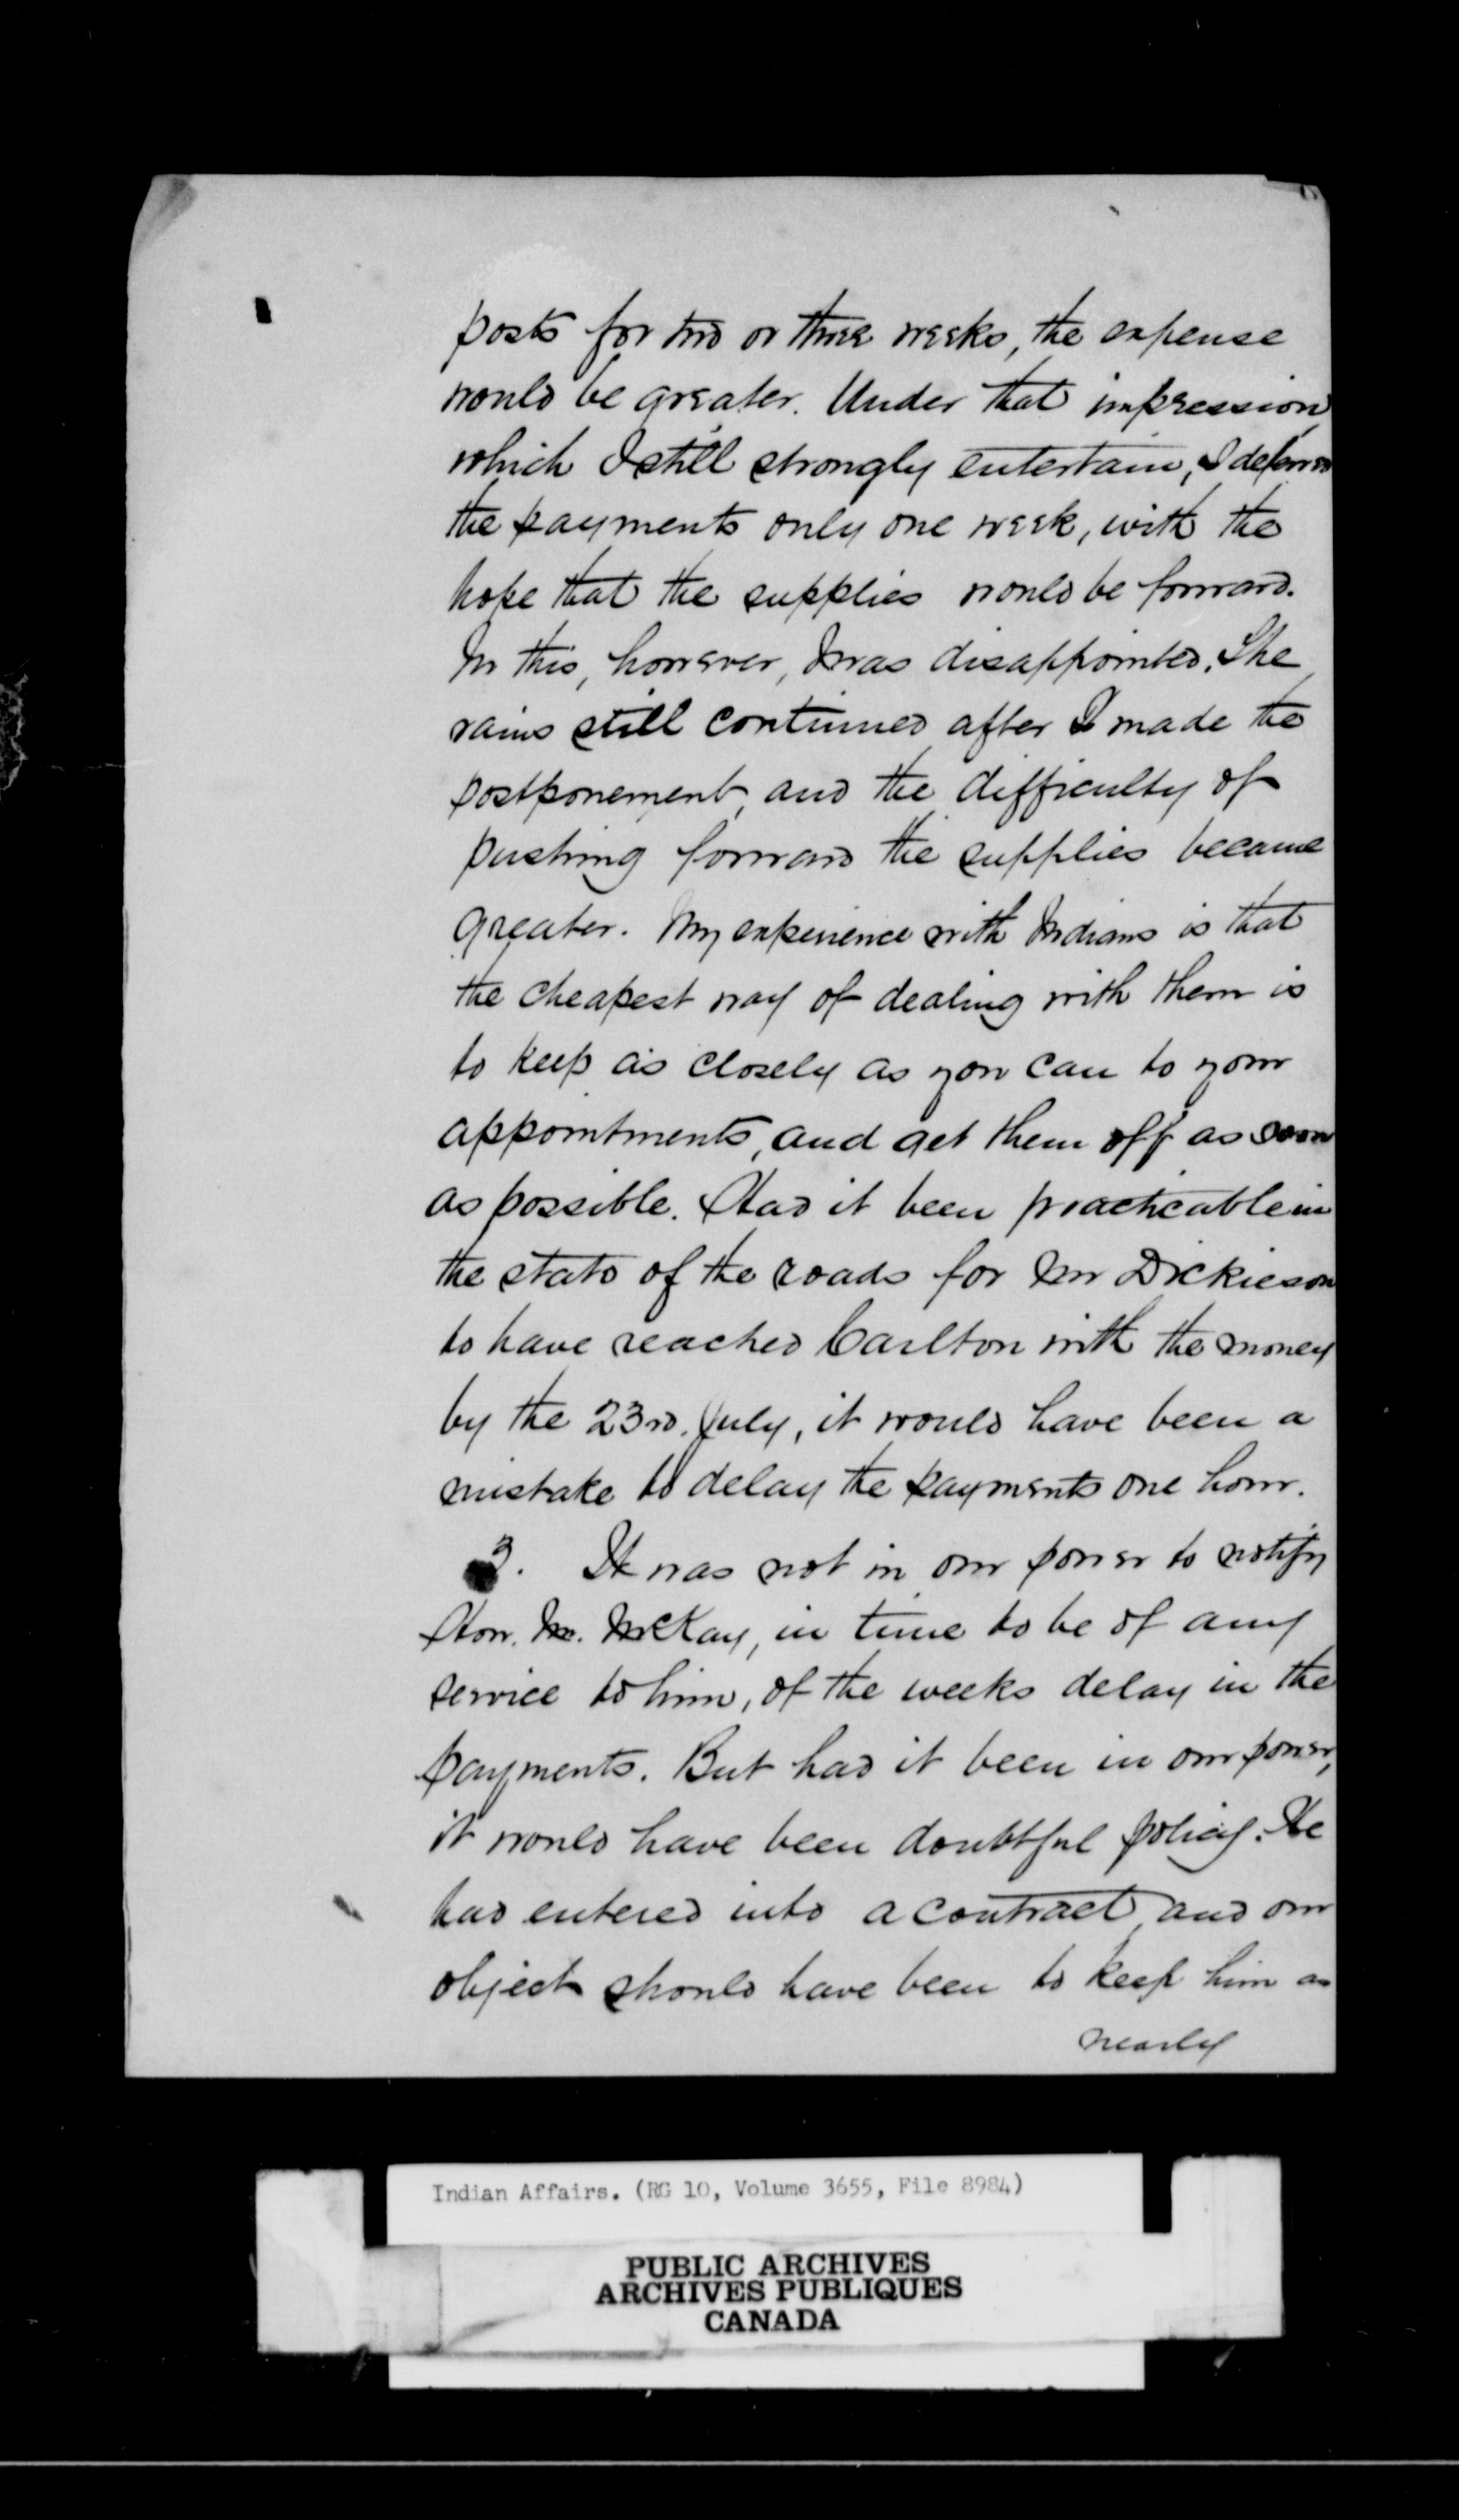 posts for two or three weeks, the expense
would be greater. Under that impression
which I still strongly entertain, I deferred
the payments only one week, with the
hope that the supplies would be forward.
In this, however, I was disappointed. The
rains still continued after I made the
postponement, and the difficulty of
pushing forward the supplies became
greater. My experience with Indians is that
the cheapest way of dealing with them is
to keep as closely as you can to your
appointments, and get them off as soon
as possible. Had it been practicable in
the state of the roads for Mr Dickieson
to have reached Carlton with the money
by the 23rd. July, it would have been a
mistake to delay the payments one hour.
3. It was not in our power to notify
Hon. Mr. McKay, in time to be of any
service to him, of the weeks delay in the
payments. But had it been in our power,
it would have been doubtful policy. He
had entered into a contract, and our
object should have been to keep him as
nearly
Indian Affairs. (RG 10, Volume 3655, File 8984)
PUBLIC ARCHIVES
ARCHIVES PUBLIQUES
CANADA